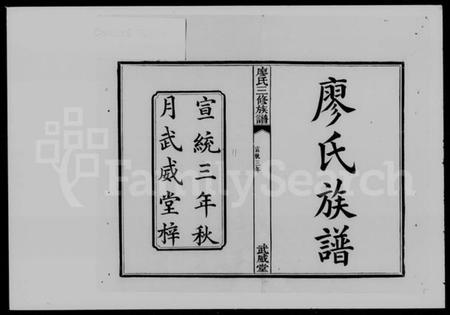 廖氏族譜
廖氏三修族譜
宣統三年
武威堂
宣統三年秋
月武威堂梓
FamilySearch